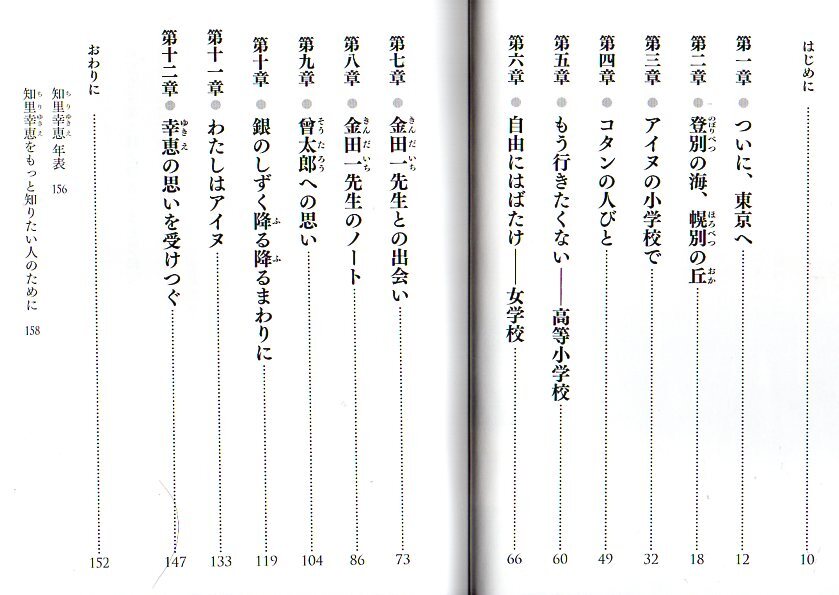 はじめに 10
第一章 ● ついに、東京へ 12
第二章 ● 登別の海、幌別の丘 18
第三章 ● アイヌの小学校で 32
第四章 ● コタンの人びと 49
第五章 ● もう行きたくない――高等小学校 60
第六章 ● 自由にはばたけ――女学校 66
第七章 ● 金田一先生との出会い 73
第八章 ● 金田一先生のノート 86
第九章 ● 曾太郎への思い 104
第十章 ● 銀のしずく降る降るまわりに 119
第十一章 ● わたしはアイヌ 133
第十二章 ● 幸恵の思いを受けつぐ 147
おわりに 152
知里幸恵 年表 156
知里幸恵をもっと知りたい人のために 158